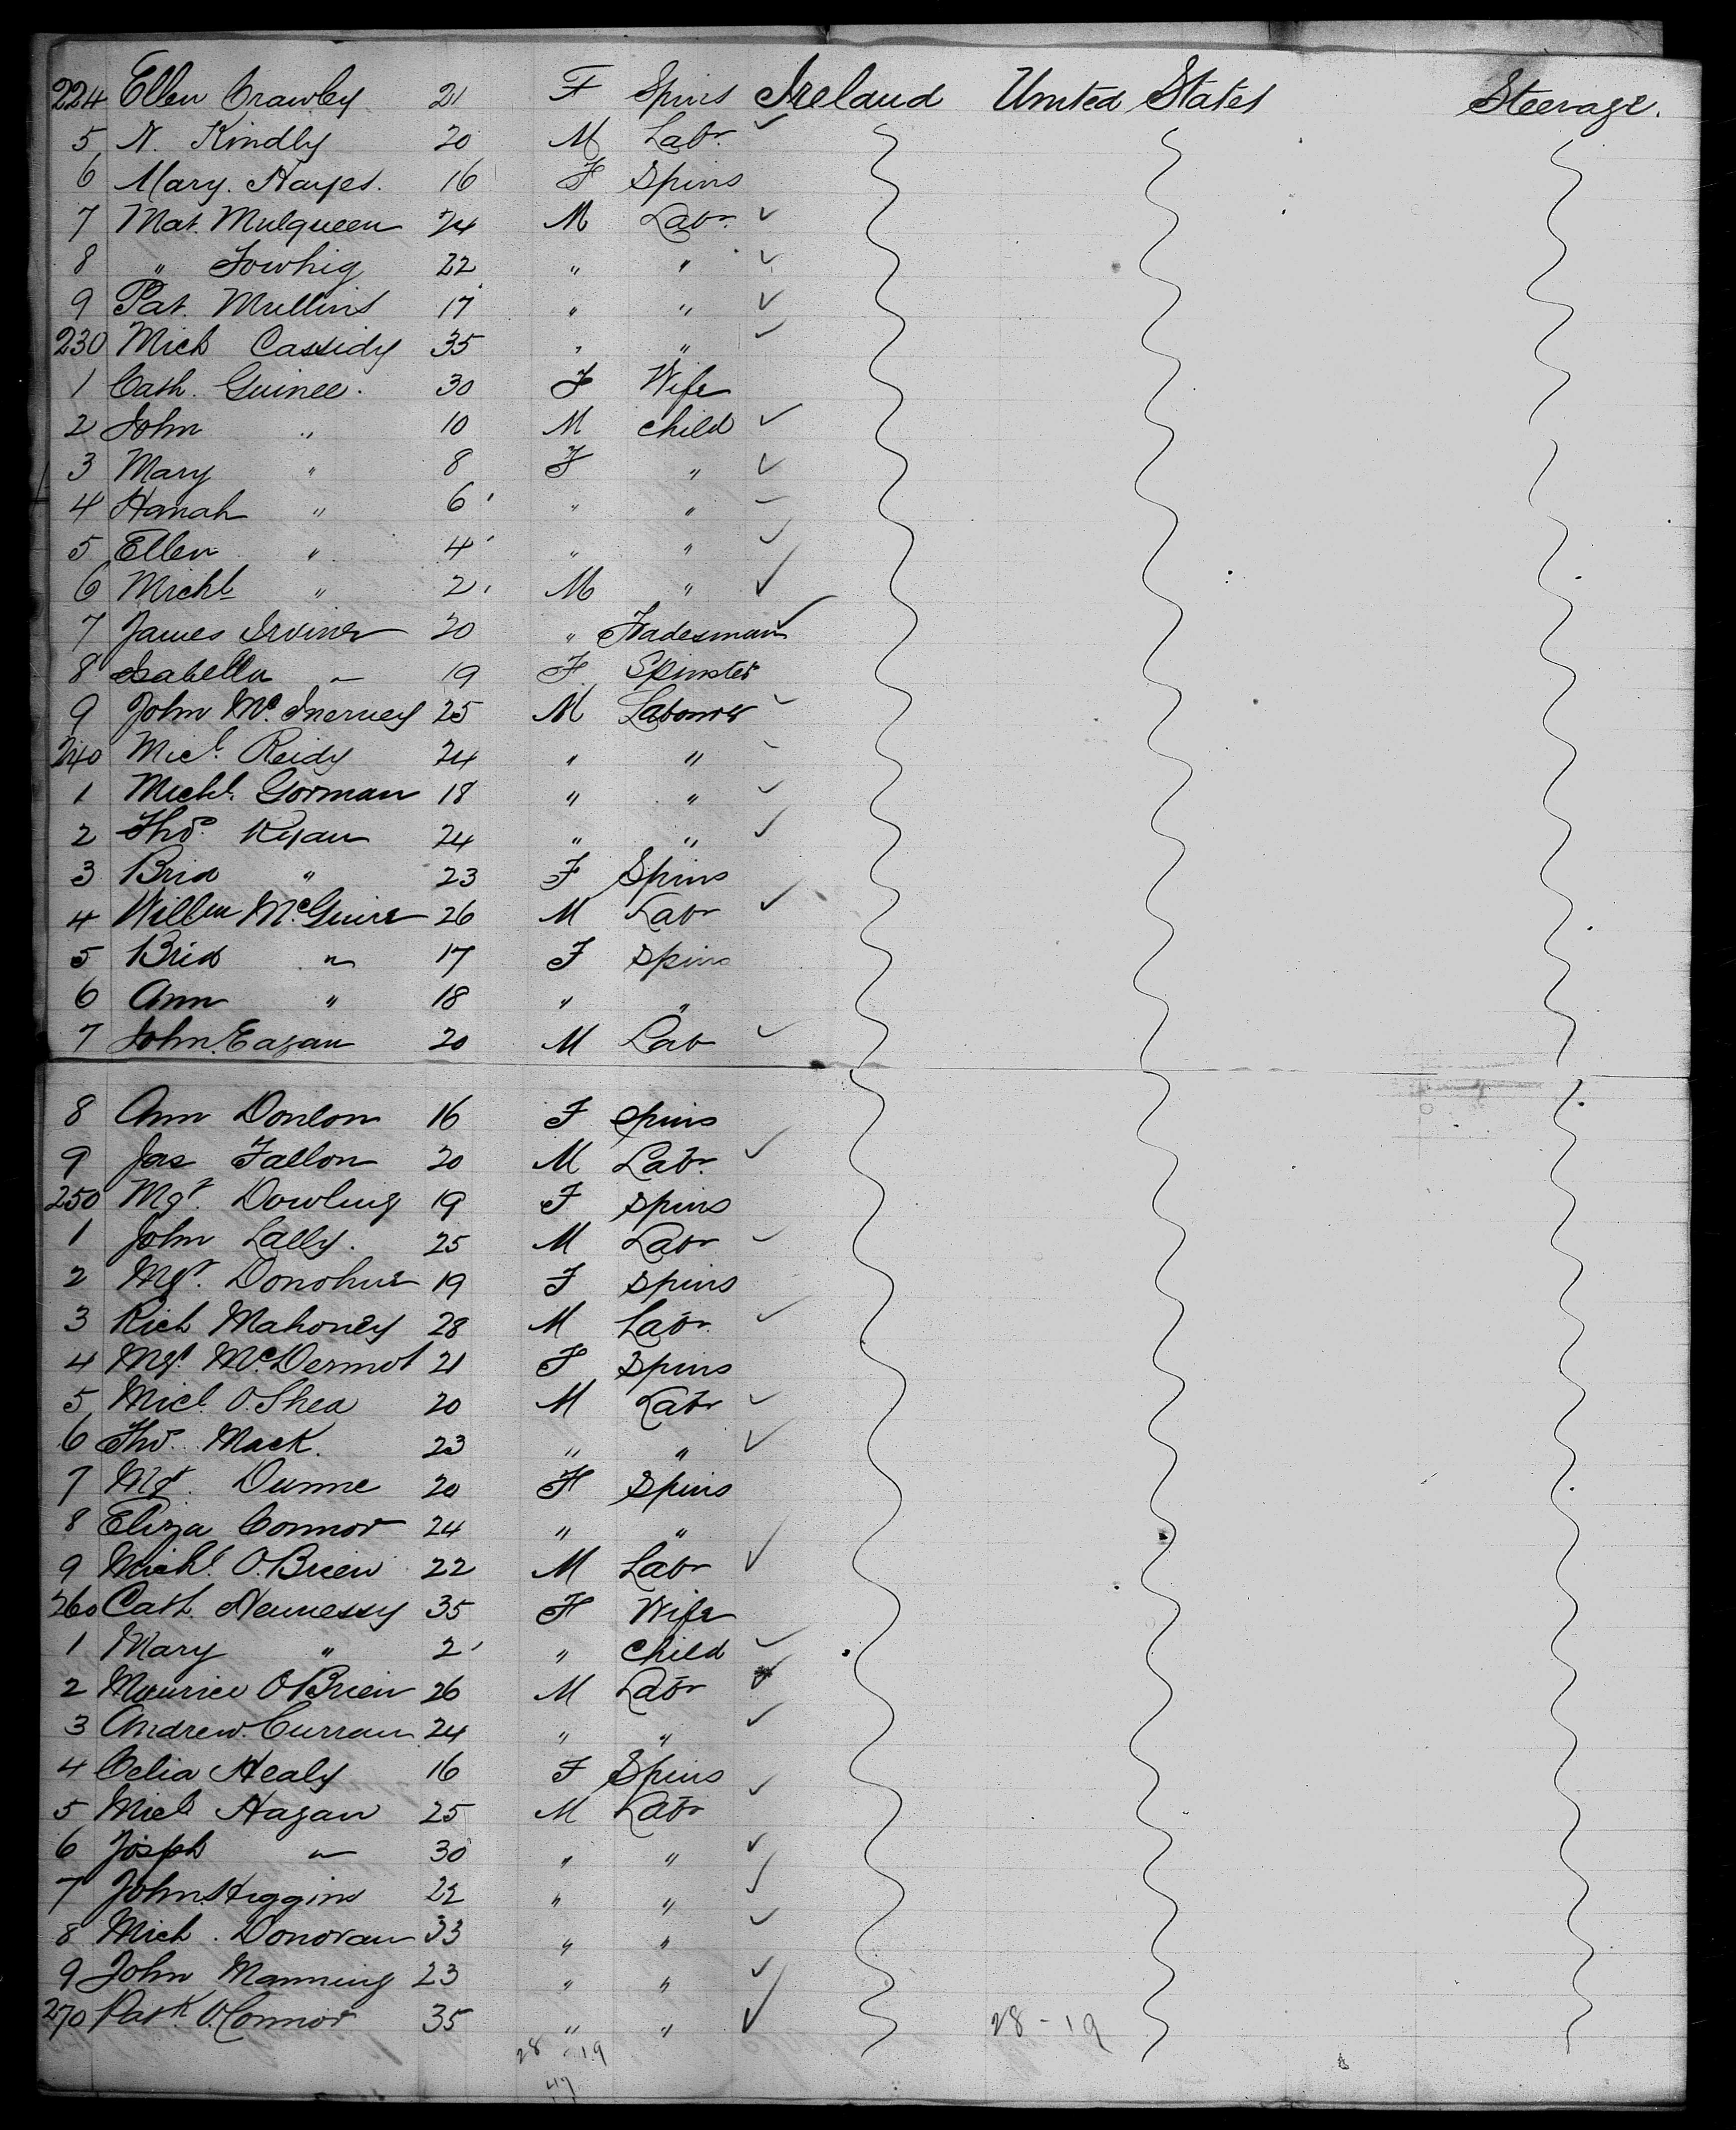 224 Ellen Crawley 21 F Spins Ireland United States Steerage.
5 N. Kindly 20 M Labr.
6 Mary. Hayes. 16 F Spins
7 Mat. Mulqueen 24 M Labr.
8 " Towhig 22 " "
9 Pat. Mullins 17 " "
230 Mich Cassidy 35 " "
1 Cath. Guinee. 30 F Wife
2 John " 10 M Child
3 Mary " 8 F "
4 Hanah " 6 " "
5 Ellen " 4 " "
6 Michl " 2 M "
7 James Irvine 20 " Tradesman
8 Isabella " 19 F Spinster
9 John Mc. Inerney 25 M Labourer
240 Micl. Reidy 24 " "
1 Michl. Gorman 18 " "
2 Thos. Ryan 24 " "
3 Brid " 23 F Spins
4 Willm McGuire 26 M Labr
5 Brid " 17 F Spins
6 Ann " 18 " "
7 John Eagan 20 M Lab
8 Ann Donlon 16 F Spins
9 Jas Fallon 20 M Labr.
250 Mgt. Dowling 19 F Spins
1 John Lally. 25 M Labr
2 Mgt. Donohue 19 F Spins
3 Rich Mahoney 28 M Labr.
4 Mgt. McDermot 21 F Spins
5 Micl. O'Shea 20 M Labr
6 Thos. Mack. 23 " "
7 Mgt. Dunne 20 F Spins
8 Eliza Connor 24 " "
9 Michl. O'Brien 22 M Labr
260 Cath Hennessy 35 F Wife
1 Mary " 2 " Child
2 Maurice O'Brien 26 M Labr
3 Andrew Curran 24 " "
4 Celia Healy 16 F Spins
5 Micl Hagan 25 M Labr
6 Josph " 30 " "
7 John Higgins 22 " "
8 Mich. Donovan 33 " "
9 John Manning 23 " "
270 Patk O'Connor 35 " "
28 - 19
28 - 19
47